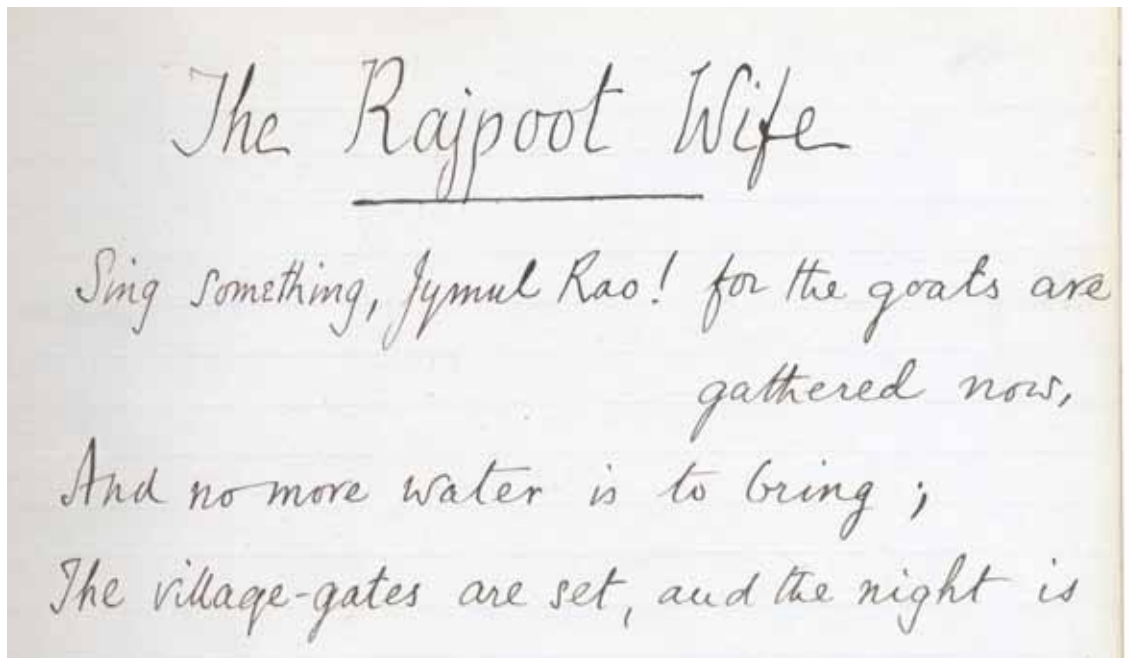 The Rajpoot Wife
Sing something, Jymul Rao! for the goats are
gathered now,
And no more water is to bring;
The village-gates are set, and the night is